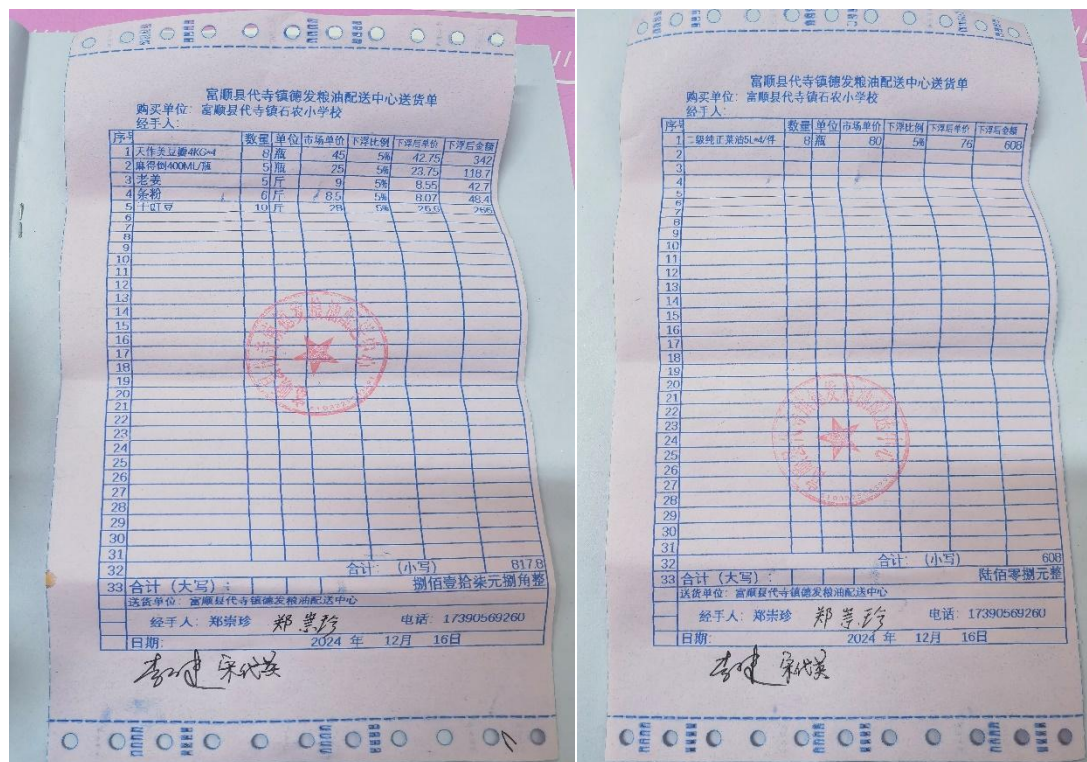 富顺县代寺镇德发粮油配送中心送货单
购买单位: 富顺县代寺镇石农小学校
经手人:
序号 数量 单位 市场单价 下浮比例 下浮后单价 下浮后金额
1 天作美豆瓣4KG*4 8 瓶 45 5% 42.75 342
2 麻得倒400ML/瓶 5 瓶 25 5% 23.75 118.7
3 老姜 5 斤 9 5% 8.55 42.7
4 条粉 6 斤 8.5 5% 8.07 48.4
5 10 斤 28 5% 26.6 266
6
7
8
9
10
11
12
13
14
15
16
17
18
19
20
21
22
23
24
25
26
27
28
29
30
31
32 合计: (小写) 817.8
33 合计（大写）: 捌佰壹拾柒元捌角整
送货单位: 富顺县代寺镇德发粮油配送中心
经手人: 郑崇珍 郑崇珍 电话: 17390569260
日期: 2024 年 12月 16日
宋代英
富顺县代寺镇德发粮油配送中心送货单
购买单位: 富顺县代寺镇石农小学校
经手人:
序号 数量 单位 市场单价 下浮比例 下浮后单价 下浮后金额
1 二级纯正菜油5L*4/件 8 瓶 80 5% 76 608
2
3
4
5
6
7
8
9
10
11
12
13
14
15
16
17
18
19
20
21
22
23
24
25
26
27
28
29
30
31
32 合计: (小写) 608
33 合计（大写）: 陆佰零捌元整
送货单位: 富顺县代寺镇德发粮油配送中心
经手人: 郑崇珍 郑崇珍 电话: 17390569260
日期: 2024 年 12月 16日
宋代英